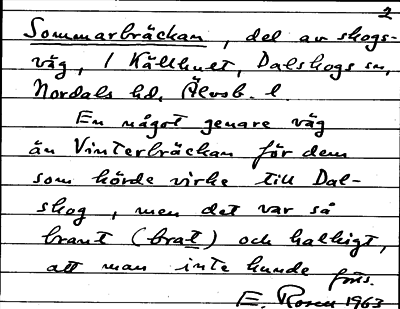 2
Sommarbräckan, del av skogs-
väg, 1 Källhult, Dalskogs sn,
Nordals hd, Älvsb. l
En något genare väg
än Vinterbräckan för dem
som körde virke till Dal-
skog, men det var så
brant (brat) och halkigt,
att man inte kunde
E. Rosen 1963